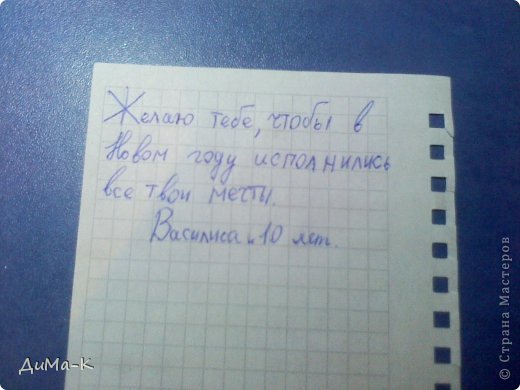 Желаю тебе, чтобы в
Новом году исполнились
все твои мечты.
Василиса 10 лет.
ДиМа-К
© Страна Мастеров